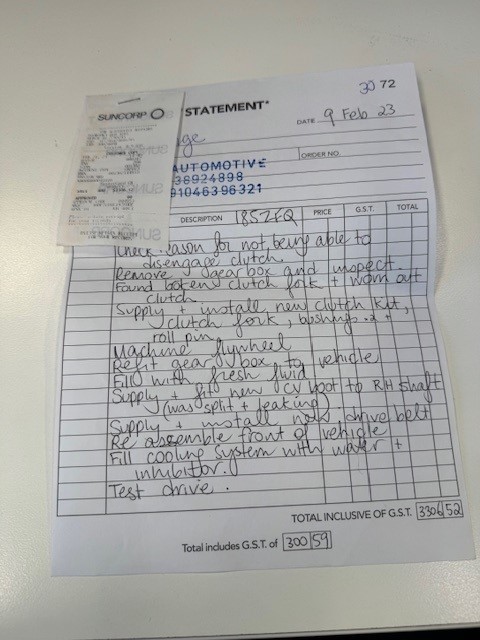 30 72
SUNCORP
STATEMENT*
DATE 9 Feb 23
ge
AUTOMOTIVE
ORDER NO.
38924898
91046396321
DESCRIPTION 185ZFQ PRICE G.S.T. TOTAL
Check reason for not being able to
disengage clutch.
Remove gearbox and inspect.
Found broken clutch fork + worn out
clutch.
Supply + install new clutch kit,
clutch fork, bushings x2 +
roll pin
Machine flywheel
Refit gear box to vehicle
Fill with fresh fluid
Supply + fit new CV boot to RH shaft
(was split + leaking)
Supply + install new drive belt
Re assemble front of vehicle
Fill cooling system with water +
inhibitor.
Test drive.
TOTAL INCLUSIVE OF G.S.T. 3306 52
Total includes G.S.T. of 300 59